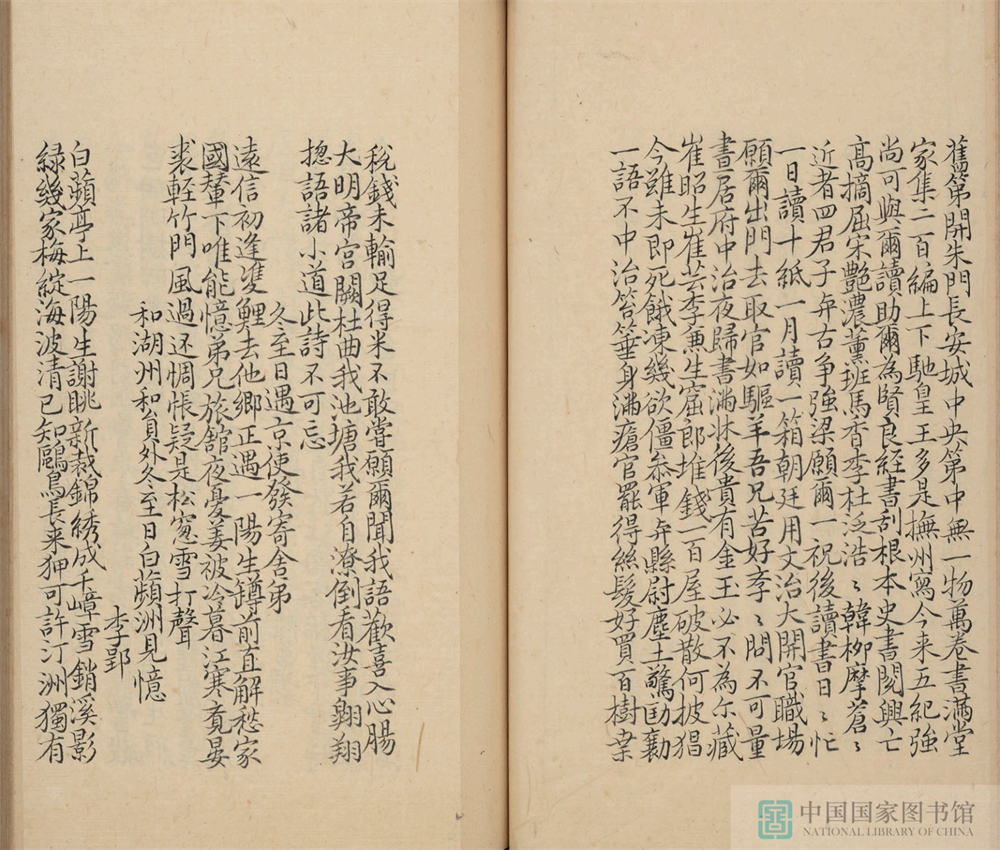 舊第開朱門長安城中央第中無一物萬卷書滿堂
家集二百編上下馳皇王多是撫州寫今来五紀強
尚可與爾讀助爾為賢良經書刮根本史書閱興亡
高摘屈宋艷濃薰班馬香李杜泛浩〻韓柳摩蒼〻
近者四君子與古争強梁願爾一祝後讀書日〻忙
一日讀十紙一月讀一箱朝廷用文治大開官職場
願爾出門去取官如驅羊吾兄苦好李〻問不可量
晝居府中治夜歸書滿牀後貴有金玉必不為尓藏
崔昭生崔芸李兼生窟郎堆錢一百屋破散何披猖
今雖未即死餓凍幾欲僵叅軍與縣尉塵土驚劻勷
一語不中治笞箠身滿瘡官罷得絲髮好買百樹桒
稅錢未輸足得米不敢嘗願爾聞我語歡喜入心腸
大明帝宮闕杜曲我池塘我若自潦倒看汝事翱翔
揔語諸小道此詩不可忘
冬至日遇京使發寄舍弟
遠信初逢雙鯉去他鄉正遇一陽生罇前直解愁家
國輦下唯能憶弟兄旅舘夜憂姜被冷暮江寒覔晏
裘輕竹門風過还惆悵疑是松窓雪打聲
和湖州和員外冬至日白蘋洲見憶
李郢
白蘋亭上一陽生謝眺新裁錦綉成千嶂雪銷溪影
緑幾家梅綻海波清已知鷗鳥長来狎可許汀洲獨有
中国国家图书馆
NATIONAL LIBRARY OF CHINA